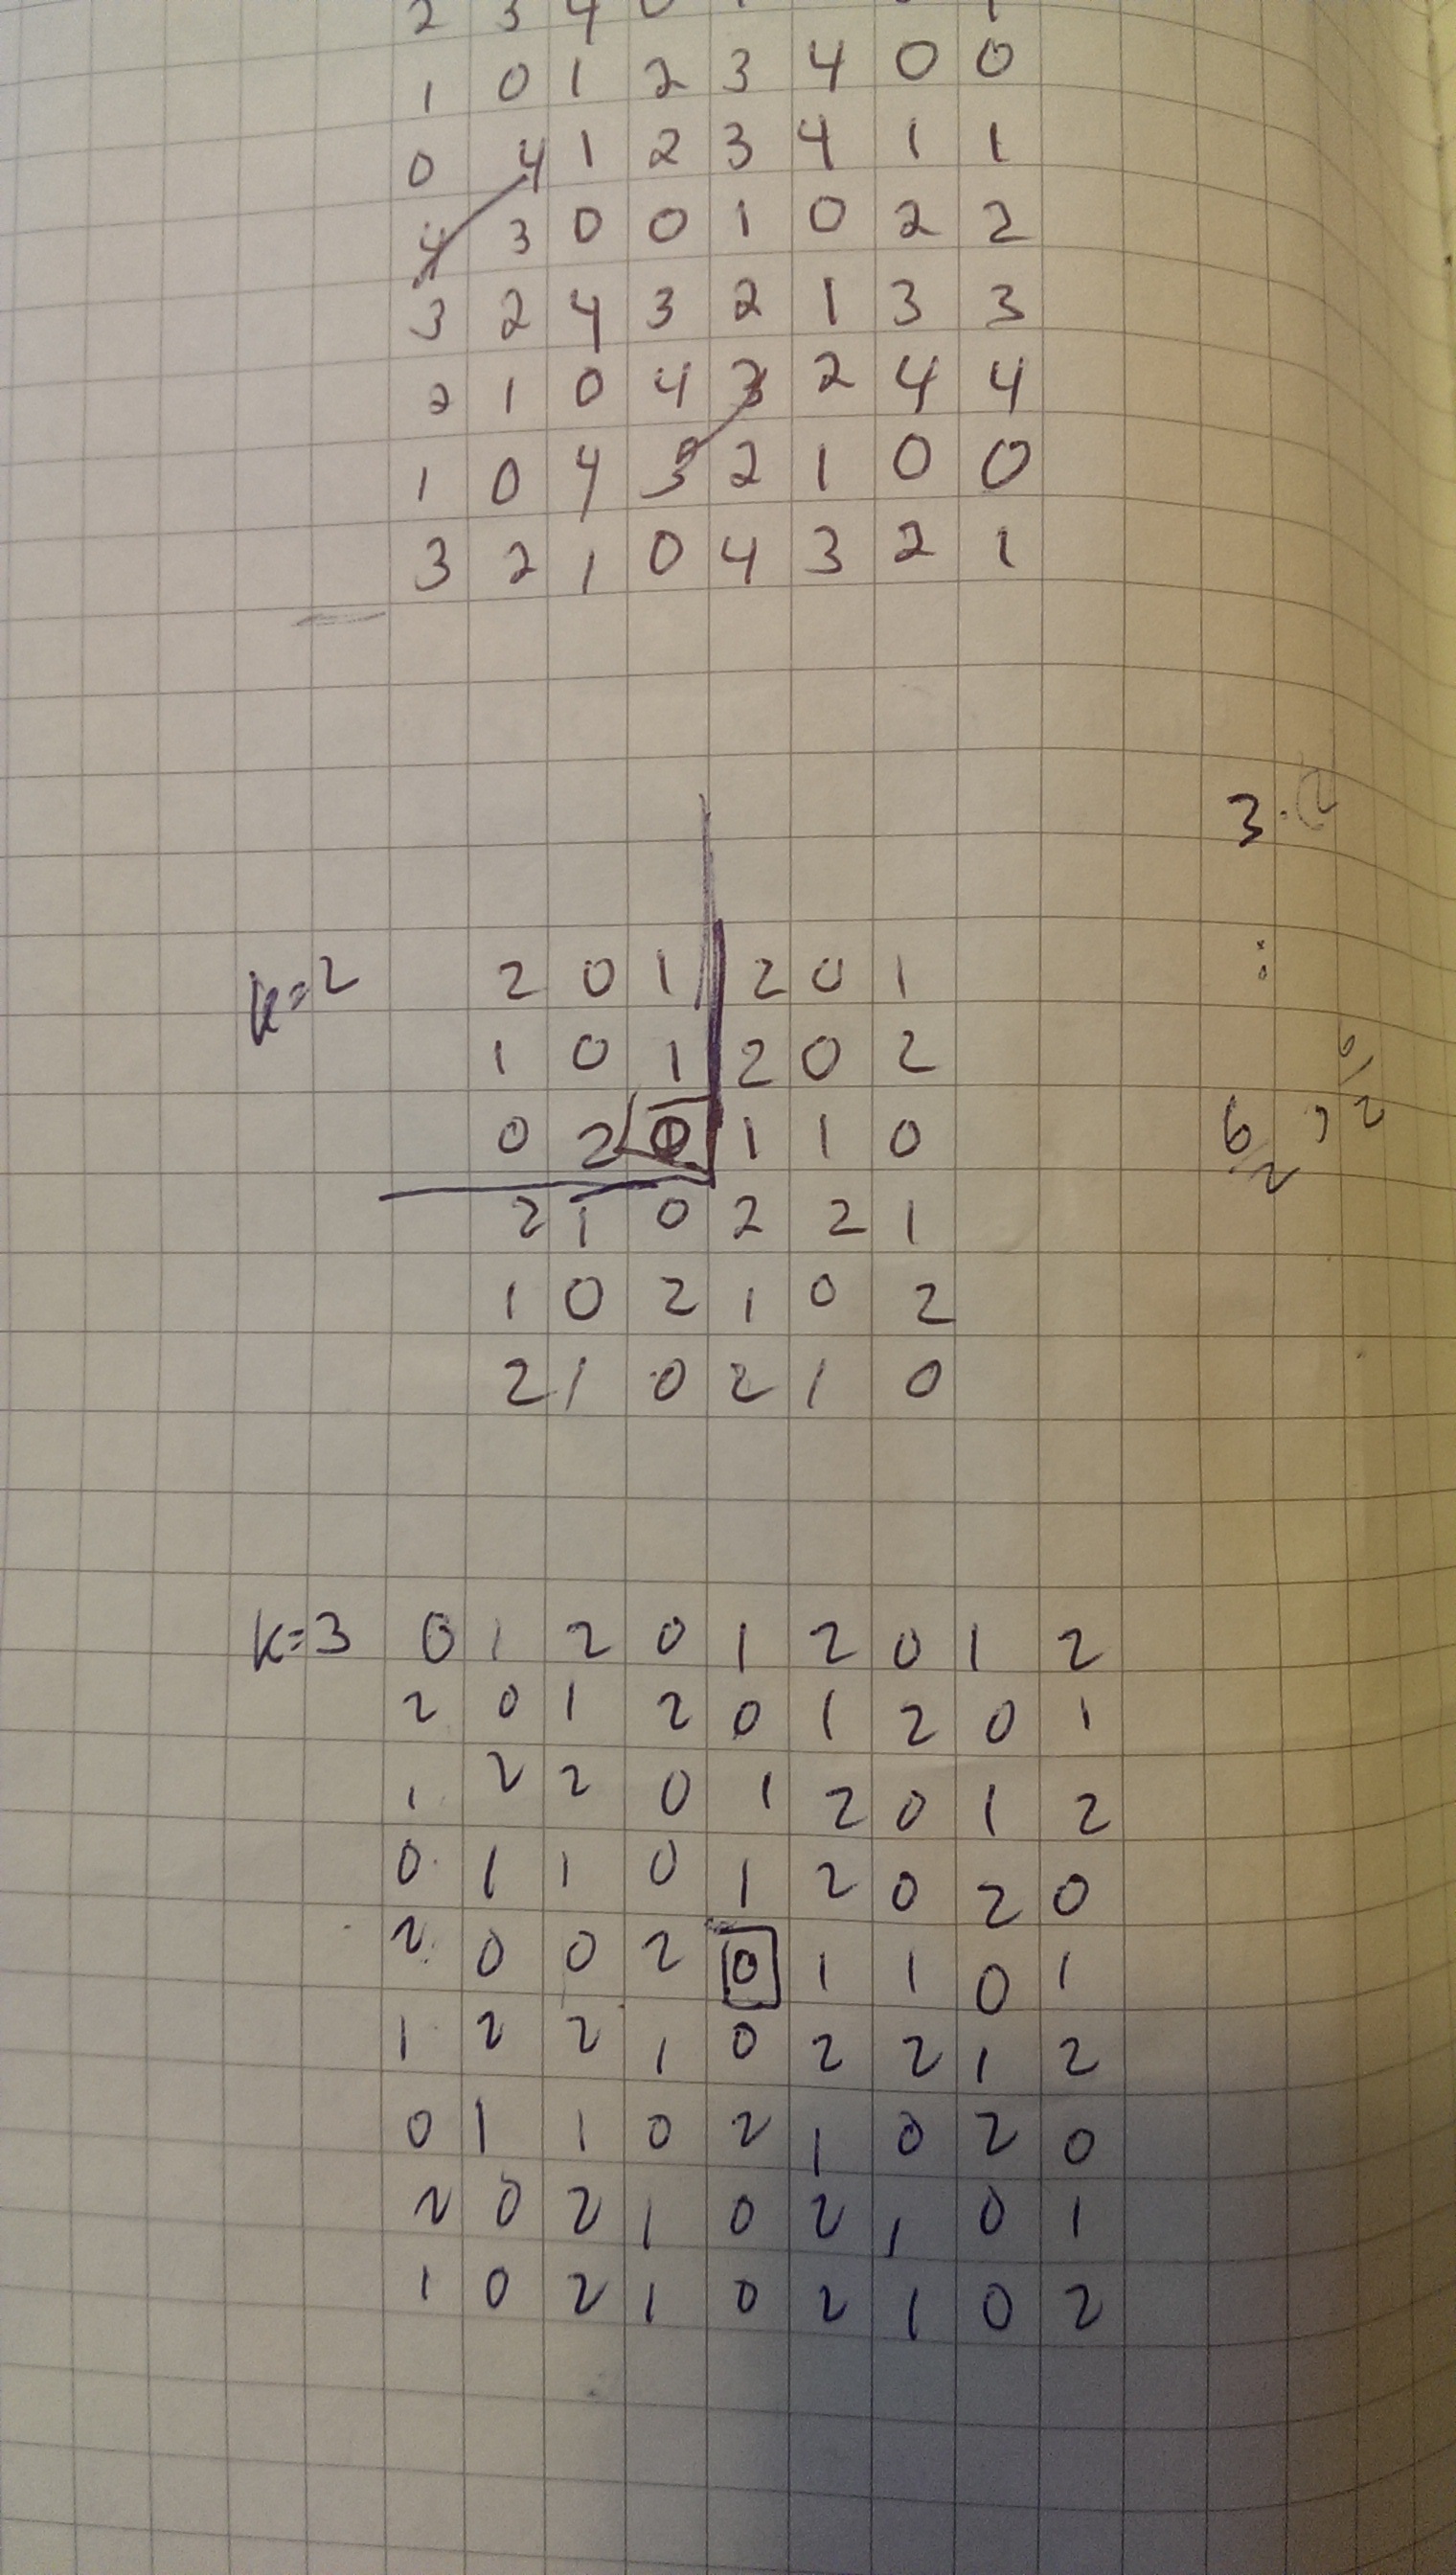 2 3 4 0
1 0 1 2 3 4 0 0
0 4 1 2 3 4 1 1
4 3 0 0 1 0 2 2
3 2 4 3 2 1 3 3
2 1 0 4 3 2 4 4
1 0 4 3 2 1 0 0
3 2 1 0 4 3 2 1
3 · (2
k=2 2 0 1 2 0 1
:
1 0 1 2 0 2
6/2
0 2 0 1 1 0
6/2 , 2
2 1 0 2 2 1
1 0 2 1 0 2
2 1 0 2 1 0
k=3 0 1 2 0 1 2 0 1 2
2 0 1 2 0 1 2 0 1
1 2 2 0 1 2 0 1 2
0 1 1 0 1 2 0 2 0
2 0 0 2 0 1 1 0 1
1 2 2 1 0 2 2 1 2
0 1 1 0 2 1 0 2 0
2 0 2 1 0 2 1 0 1
1 0 2 1 0 2 1 0 2